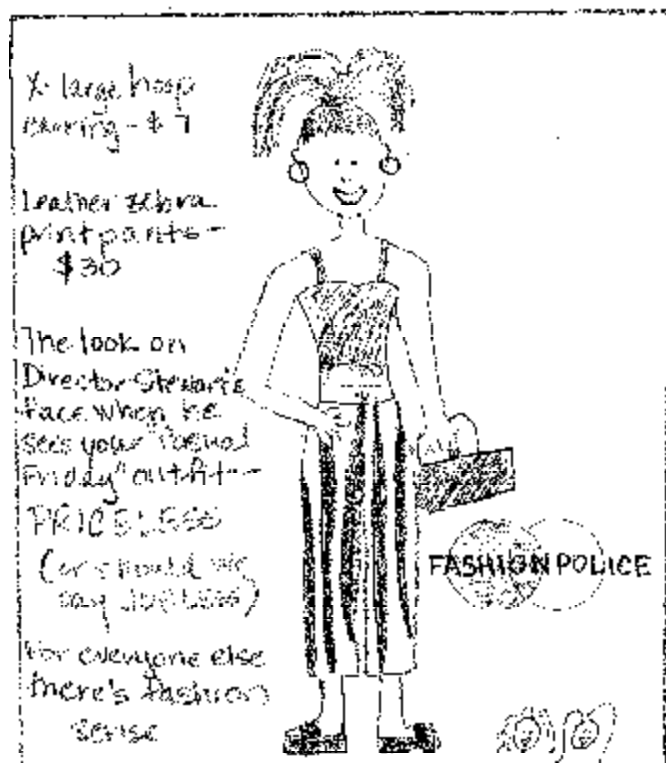 X-large hoop
earring - $7
Leather zebra
print pants -
$30
The look on
Director Stewart's
face when he
sees your "Casual
Friday" outfit -
PRICELESS
(or should we
say JOBLESS)
For everyone else
there's fashion
sense
FASHION POLICE